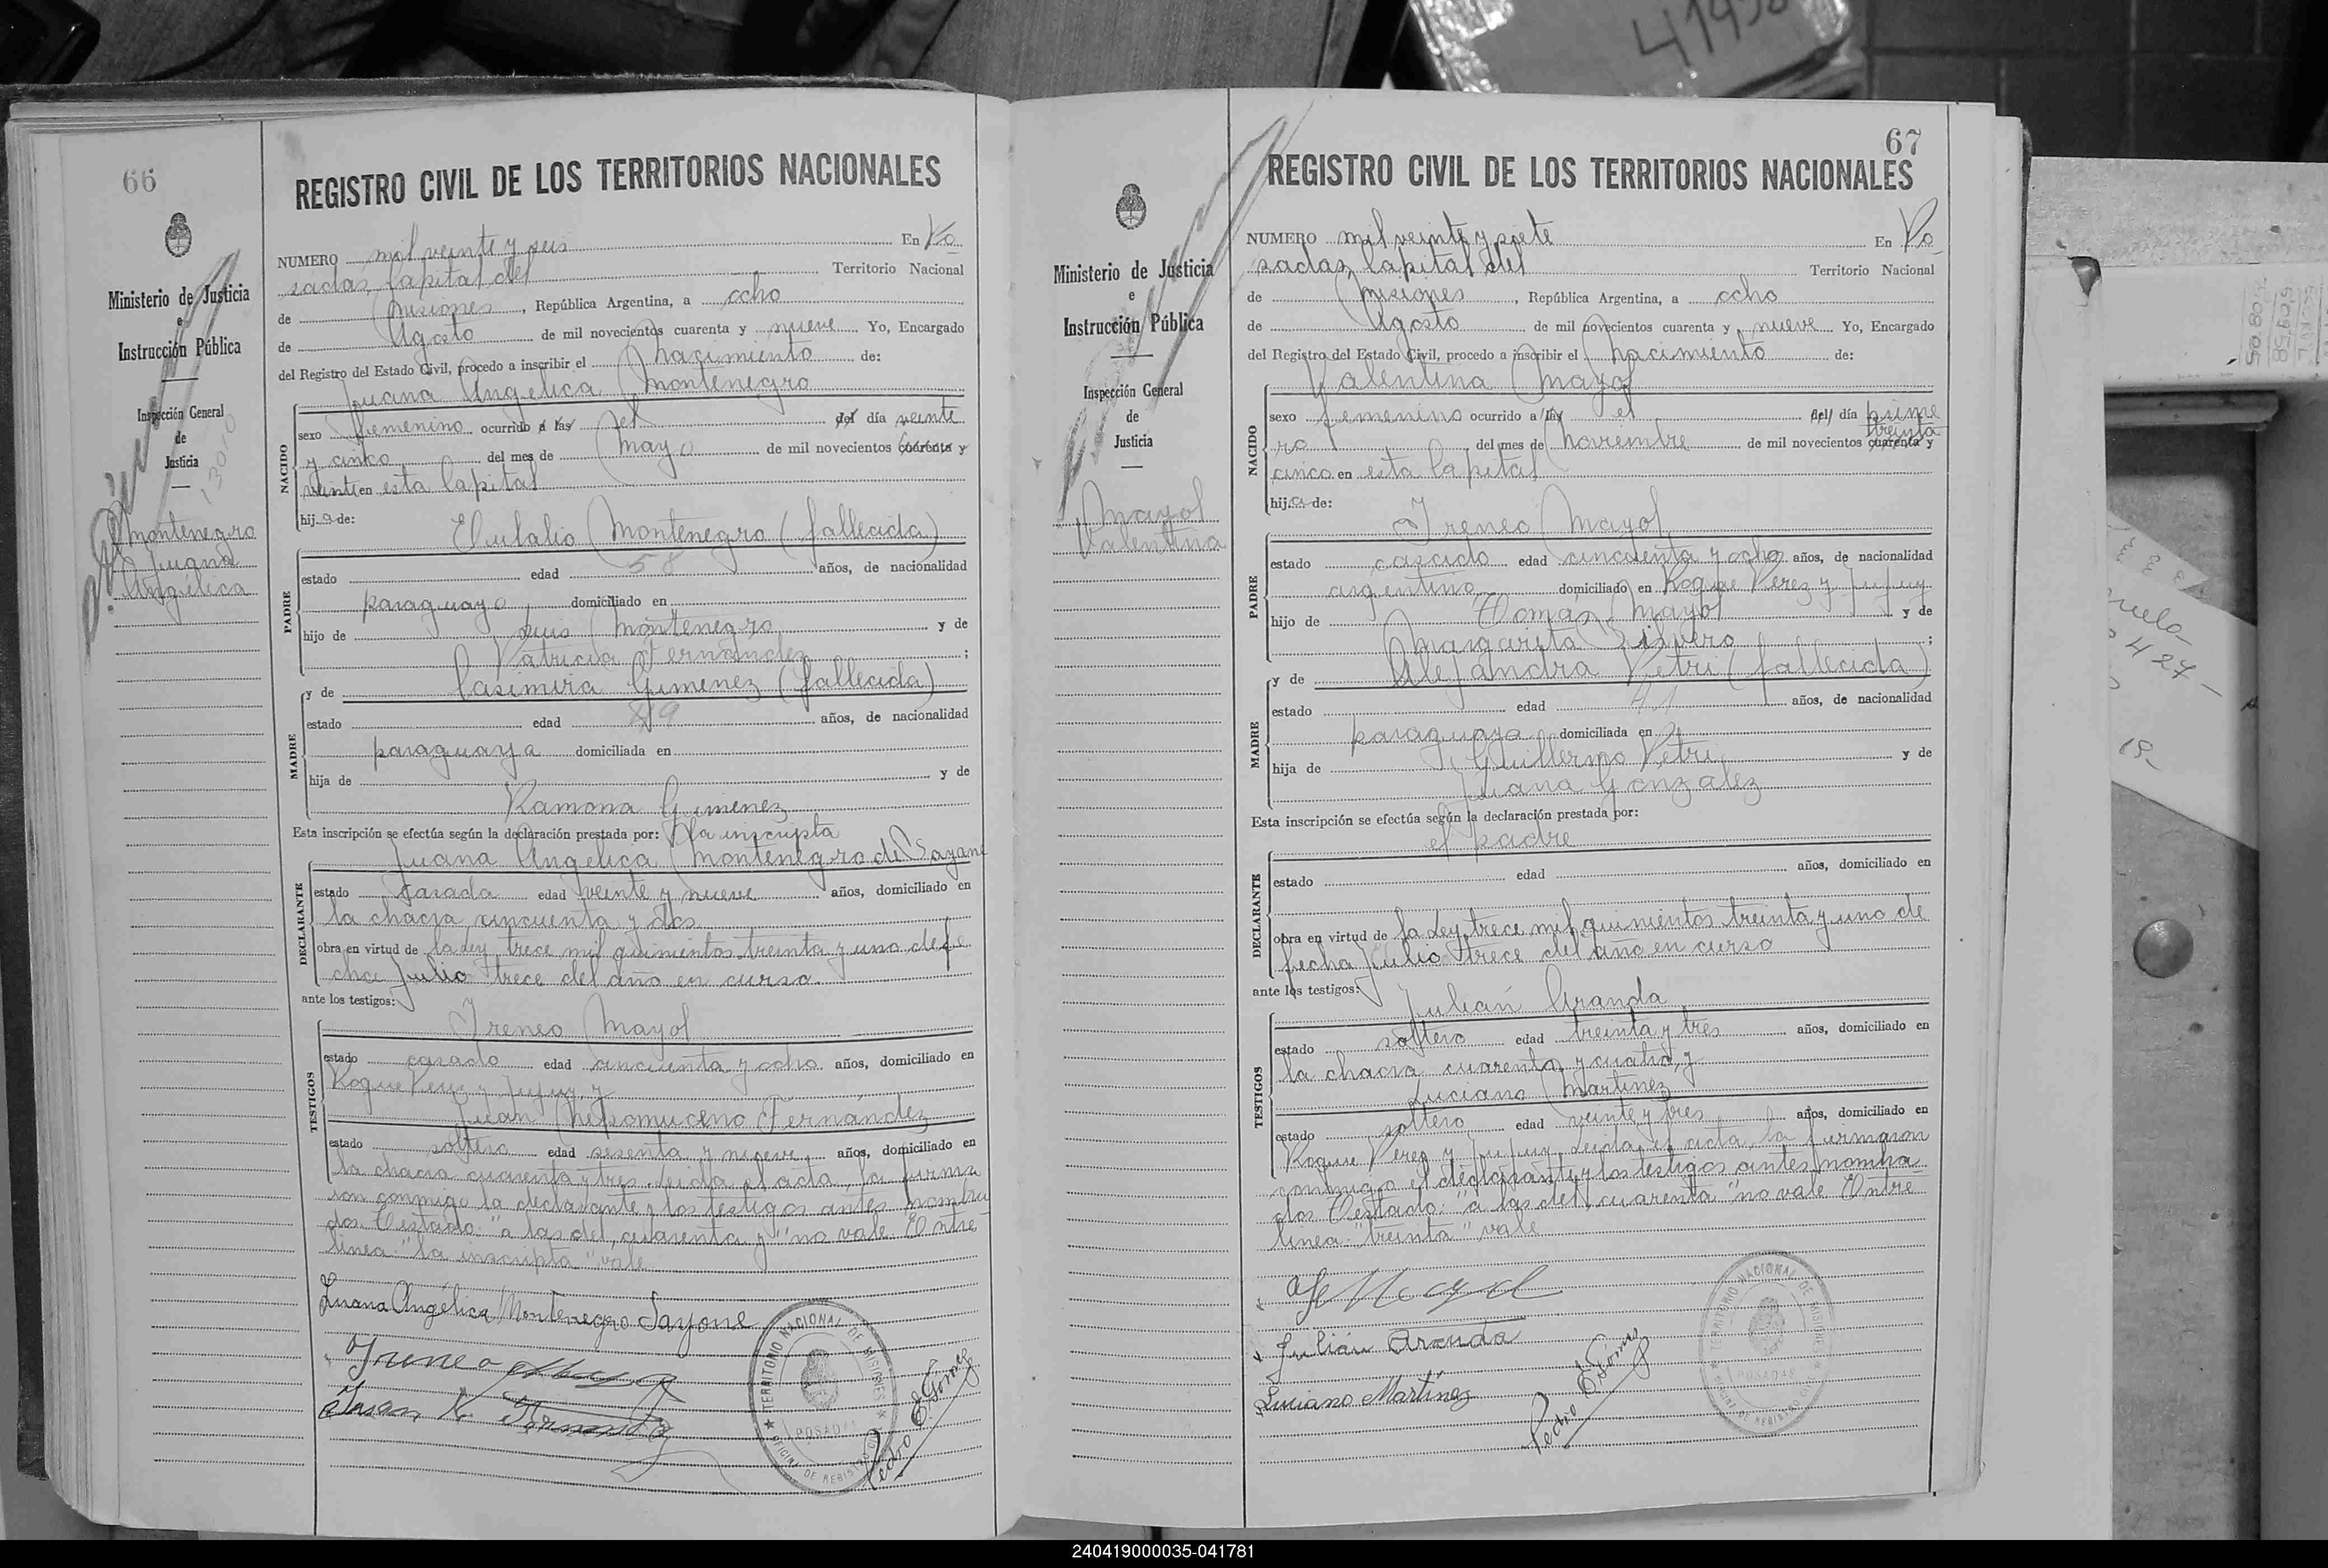 41436
66
REGISTRO CIVIL DE LOS TERRITORIOS NACIONALES
Ministerio de Justicia
e
Instrucción Pública
Inspección General
de
Justicia
Montenegro
Juana
Angélica
NUMERO mil veinte y seis En Po
sadas Capital del Territorio Nacional
de Misiones, República Argentina, a ocho
de Agosto de mil novecientos cuarenta y nueve Yo, Encargado
del Registro del Estado Civil, procedo a inscribir el nacimiento de:
Juana Angelica Montenegro
NACIDO
sexo femenino ocurrido a las el del día veinte
y cinco del mes de mayo de mil novecientos cuarenta y
veinte en esta Capital
hija de:
Eulalio Montenegro (fallecido)
PADRE
estado edad 58 años, de nacionalidad
paraguayo domiciliado en
hijo de Luis Montenegro y de
Patricia Fernandez;
MADRE
y de Casimira Gimenez (fallecida)
estado edad 89 años, de nacionalidad
paraguaya domiciliada en
hija de y de
Ramona Gimenez
Esta inscripción se efectúa según la declaración prestada por: la inscripta
Juana Angelica Montenegro de Sayane
DECLARANTE
estado casada edad veinte y nueve años, domiciliado en
la chacra cincuenta y dos
obra en virtud de la Ley trece mil quinientos treinta y uno de fe
cha Julio trece del año en curso.
ante los testigos:
Ireneo Mayol
TESTIGOS
estado casado edad cincuenta y ocho años, domiciliado en
Roque Perez y Jujuy y
Juan Nepomuceno Fernández
estado soltero edad sesenta y nueve años, domiciliado en
la chacra cuarenta y tres. Leida el acta, la firma
ron conmigo la declarante y los testigos antes nombra
dos. Testado: "a las del, cuarenta y" no vale. Entre
linea: "la inscripta" vale
Juana Angélica Montenegro Sayane
Ireneo Mayol
Juan N. Fernandez
TERRITORIO NACIONAL DE MISIONES
POSADAS
OFICINA DE REGISTRO CIVIL
Pedro E. Gómez
67
REGISTRO CIVIL DE LOS TERRITORIOS NACIONALES
Ministerio de Justicia
e
Instrucción Pública
Inspección General
de
Justicia
Mayol
Valentina
NUMERO mil veinte y siete En Po
sadas Capital del Territorio Nacional
de Misiones, República Argentina, a ocho
de Agosto de mil novecientos cuarenta y nueve Yo, Encargado
del Registro del Estado Civil, procedo a inscribir el nacimiento de:
Valentina Mayol
NACIDO
sexo femenino ocurrido a las el del día prime
treinta
ro del mes de noviembre de mil novecientos cuarenta y
cinco en esta Capital
hija de:
Ireneo Mayol
PADRE
estado casado edad cincuenta y ocho años, de nacionalidad
argentino domiciliado en Roque Perez y Jujuy
hijo de Tomás Mayol y de
Margarita;
MADRE
y de Alejandra Petri (fallecida)
estado edad 41 años, de nacionalidad
paraguaya domiciliada en
hija de Guillermo Petri y de
Juana Gonzalez
Esta inscripción se efectúa según la declaración prestada por:
el padre
DECLARANTE
estado edad años, domiciliado en
obra en virtud de la Ley trece mil quinientos treinta y uno de
fecha Julio trece del año en curso
ante los testigos:
Julián Aranda
TESTIGOS
estado soltero edad treinta y tres años, domiciliado en
la chacra cuarenta y cuatro, y
Luciano Martinez
estado soltero edad veinte y tres años, domiciliado en
Roque Perez y Jujuy. Leida el acta, la firmaron
conmigo el declarante y los testigos antes nombra
dos. Testado: "a las del, cuarenta" no vale. Entre
linea: "treinta" vale
Julián Aranda
Luciano Martínez
Pedro E. Gómez
TERRITORIO NACIONAL DE MISIONES
POSADAS
OFICINA DE REGISTRO CIVIL
240419000035-041781